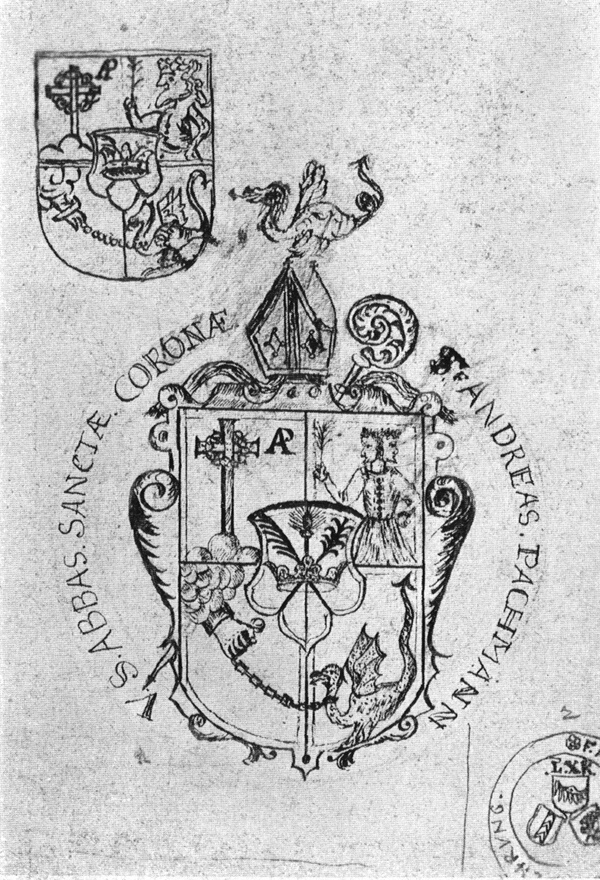 AP
Fr. ANDREAS. PACHMANN
VS. ABBAS. SANCTÆ. CORONÆ
AP
2
L.X.R.